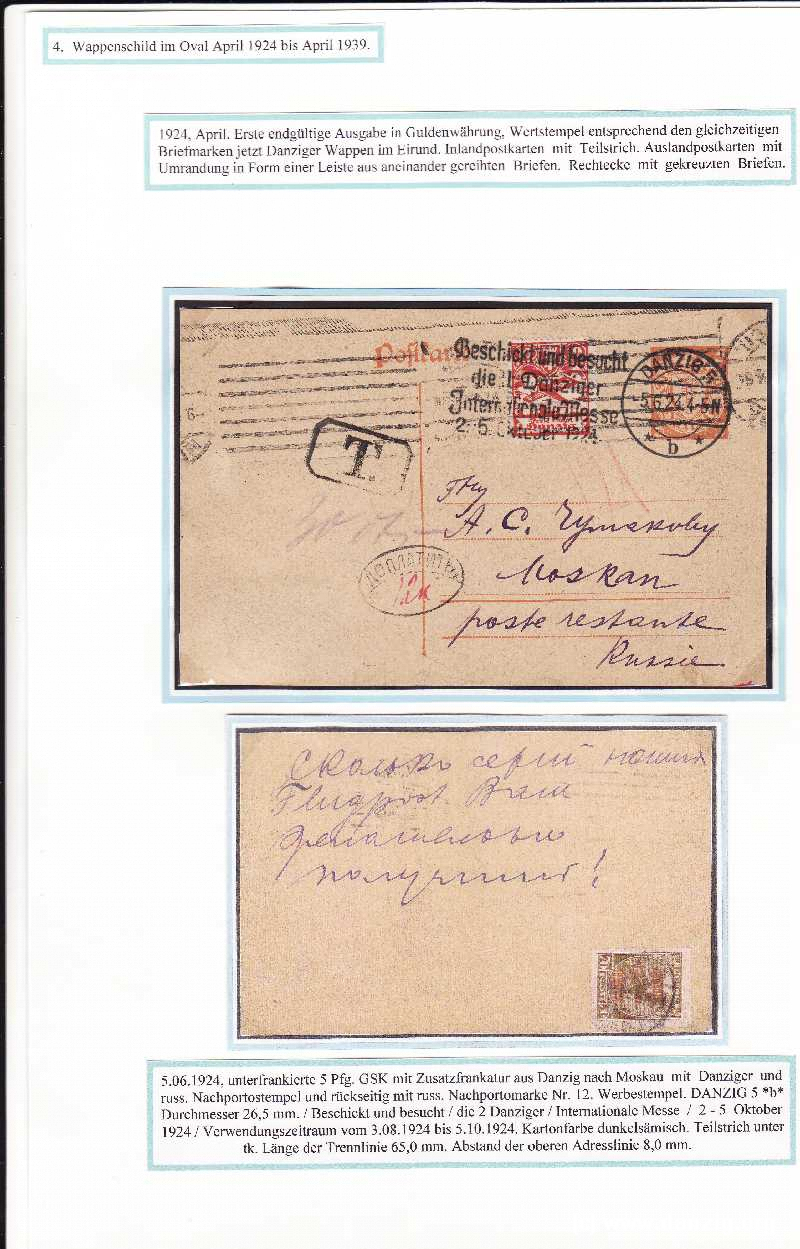 4. Wappenschild im Oval April 1924 bis April 1939.
1924, April. Erste endgültige Ausgabe in Guldenwährung, Wertstempel entsprechend den gleichzeitigen
Briefmarken jetzt Danziger Wappen im Eirund. Inlandpostkarten mit Teilstrich. Auslandpostkarten mit
Umrandung in Form einer Leiste aus aneinander gereihten Briefen. Rechtecke mit gekreuzten Briefen.
Beschickt und besucht
die II. Danziger
Internationale Messe
2.-5. Oktober 1924
DANZIG 5
5.6.24.4-5N
* b *
T.
А. С. Чумакову
Moskau
poste restante
Russie
ДОПЛАТИТЬ
12к
Сколько серий наших
Flugpost Вам
желательно
получить!
5.06.1924, unterfrankierte 5 Pfg. GSK mit Zusatzfrankatur aus Danzig nach Moskau mit Danziger und
russ. Nachportostempel und rückseitig mit russ. Nachportomarke Nr. 12. Werbestempel. DANZIG 5 *b*
Durchmesser 26,5 mm. / Beschickt und besucht / die 2 Danziger / Internationale Messe / 2 - 5 Oktober
1924 / Verwendungszeitraum vom 3.08.1924 bis 5.10.1924. Kartonfarbe dunkelsämisch. Teilstrich unter
tk. Länge der Trennlinie 65,0 mm. Abstand der oberen Adresslinie 8,0 mm.